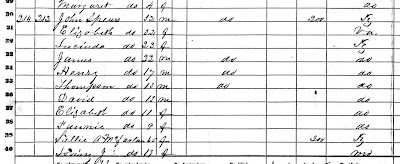 Margaret do 4 f do
30 214 212 John Spears 52 m do 300 Ky
31 Elizabeth do 52 f Va.
32 Lucinda do 22 f Ky
33 James do 22 m do do
34 Henry do 17 m do do
35 Thompson do 15 m do do
36 David do 12 m do
37 Elizabeth do 11 f do
38 Fannie do 9 f do
39 Sallie 300 Ky
40 do 17 f